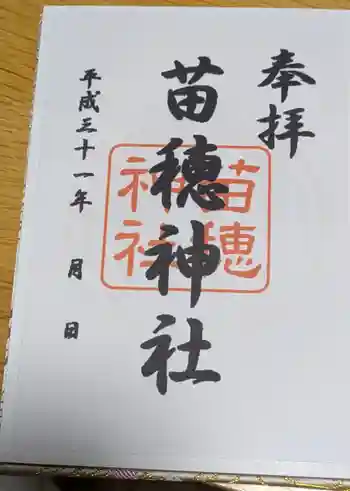 奉拝
苗穂神社
苗穂
神社
平成三十一年 月 日